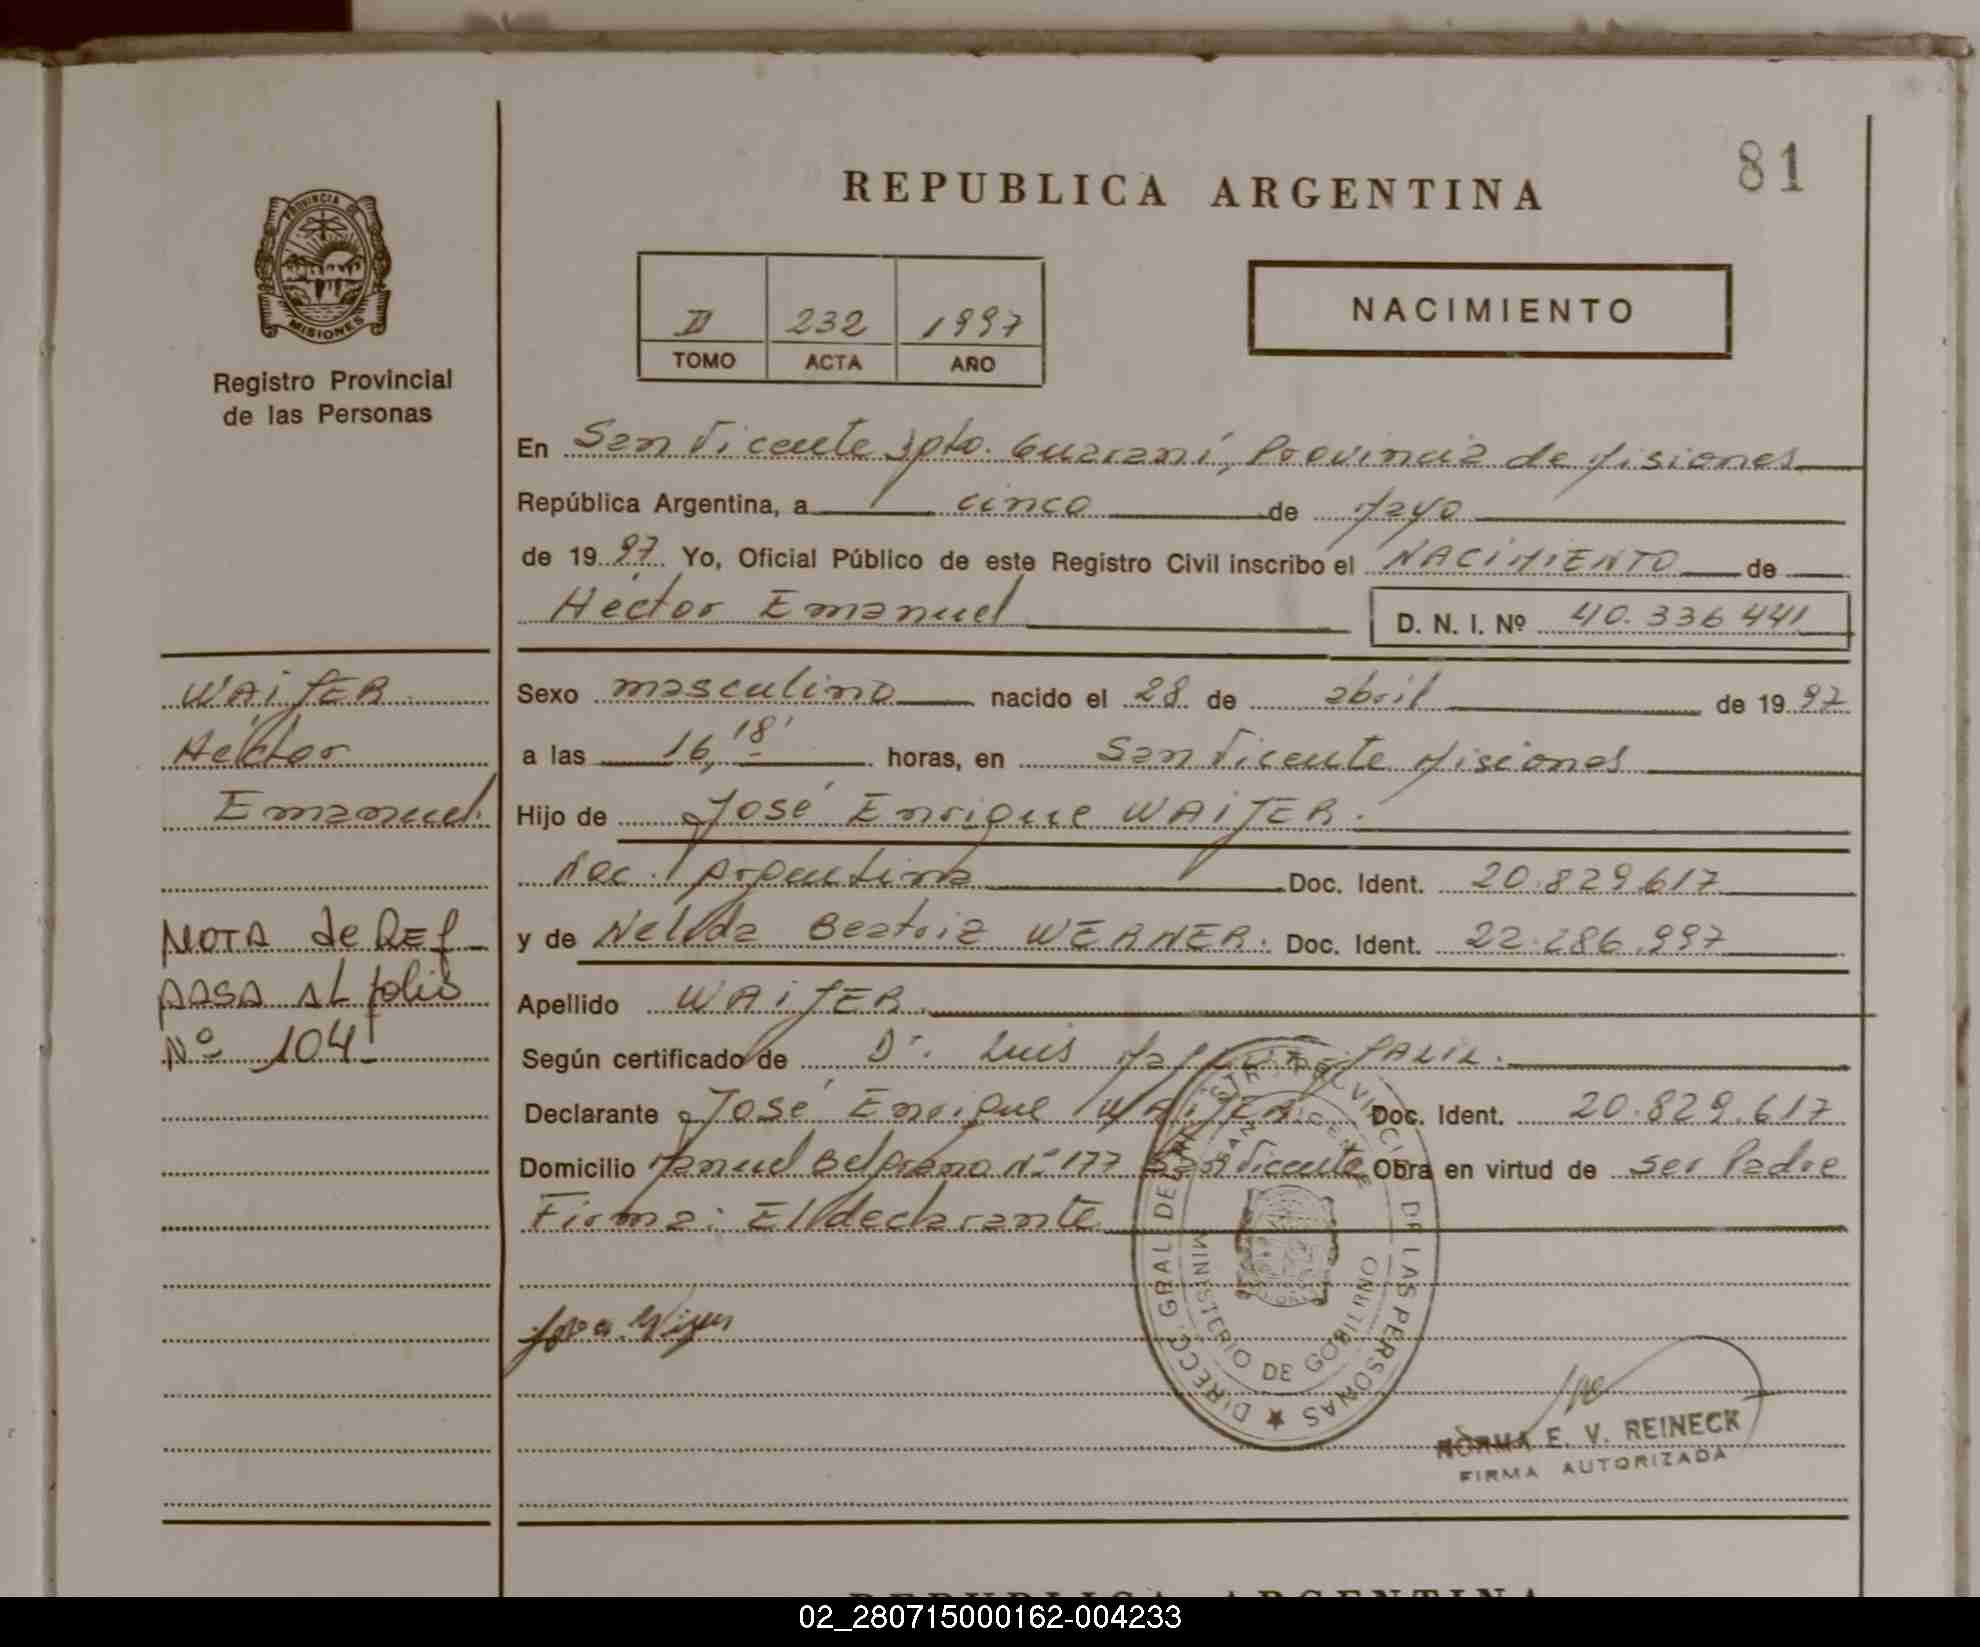 81
REPUBLICA ARGENTINA
PROVINCIA DE
MISIONES
Registro Provincial
de las Personas
II 232 1997
TOMO ACTA AÑO
NACIMIENTO
En San Vicente Dpto. Guaraní, Provincia de Misiones
República Argentina, a cinco de Mayo
de 1997 Yo, Oficial Público de este Registro Civil inscribo el NACIMIENTO de
Héctor Emanuel D. N. I. Nº 40.336 441
WAIJER
Héctor
Emanuel.
NOTA de REf
PASA AL folio
Nº 104
Sexo masculino nacido el 28 de abril de 1997
a las 16,18' horas, en San Vicente Misiones
Hijo de José Enrique WAIJER.
Nac. Argentina Doc. Ident. 20.829.617
y de Nelida Beatriz WERNER. Doc. Ident. 22.286.997
Apellido WAIJER.
Según certificado de Dr. Luis
Declarante José Enrique WAIJER. Doc. Ident. 20.829.617
Domicilio Manuel Belgrano Nº 177 San Vicente Obra en virtud de ser Padre
Firma: El declarante
DIRECC. GRAL. DEL REGISTRO PROVINCIAL DE LAS PERSONAS
SAN VICENTE
MINISTERIO DE GOBIERNO
NORMA E. V. REINECK
FIRMA AUTORIZADA
REPUBLICA ARGENTINA
02_280715000162-004233